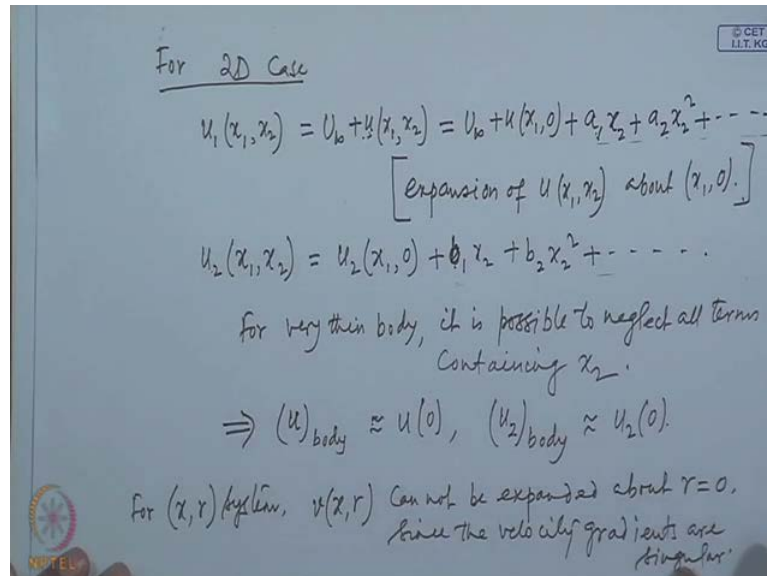 © CET
I.I.T. KG
For 2D Case
u₁(x₁,x₂) = U∞ + u(x₁,x₂) = U∞ + u(x₁,0) + a₁x₂ + a₂x₂² + - - - -
[expansion of u(x₁,x₂) about (x₁,0).]
u₂(x₁,x₂) = u₂(x₁,0) + b₁x₂ + b₂x₂² + - - - - - .
for very thin body, it is possible to neglect all terms
Containing x₂.
⇒ (u)body ≈ u(0), (u₂)body ≈ u₂(0).
For (x,r) system, v(x,r) Can not be expanded about r=0,
Since the velocity gradients are
singular.
NPTEL